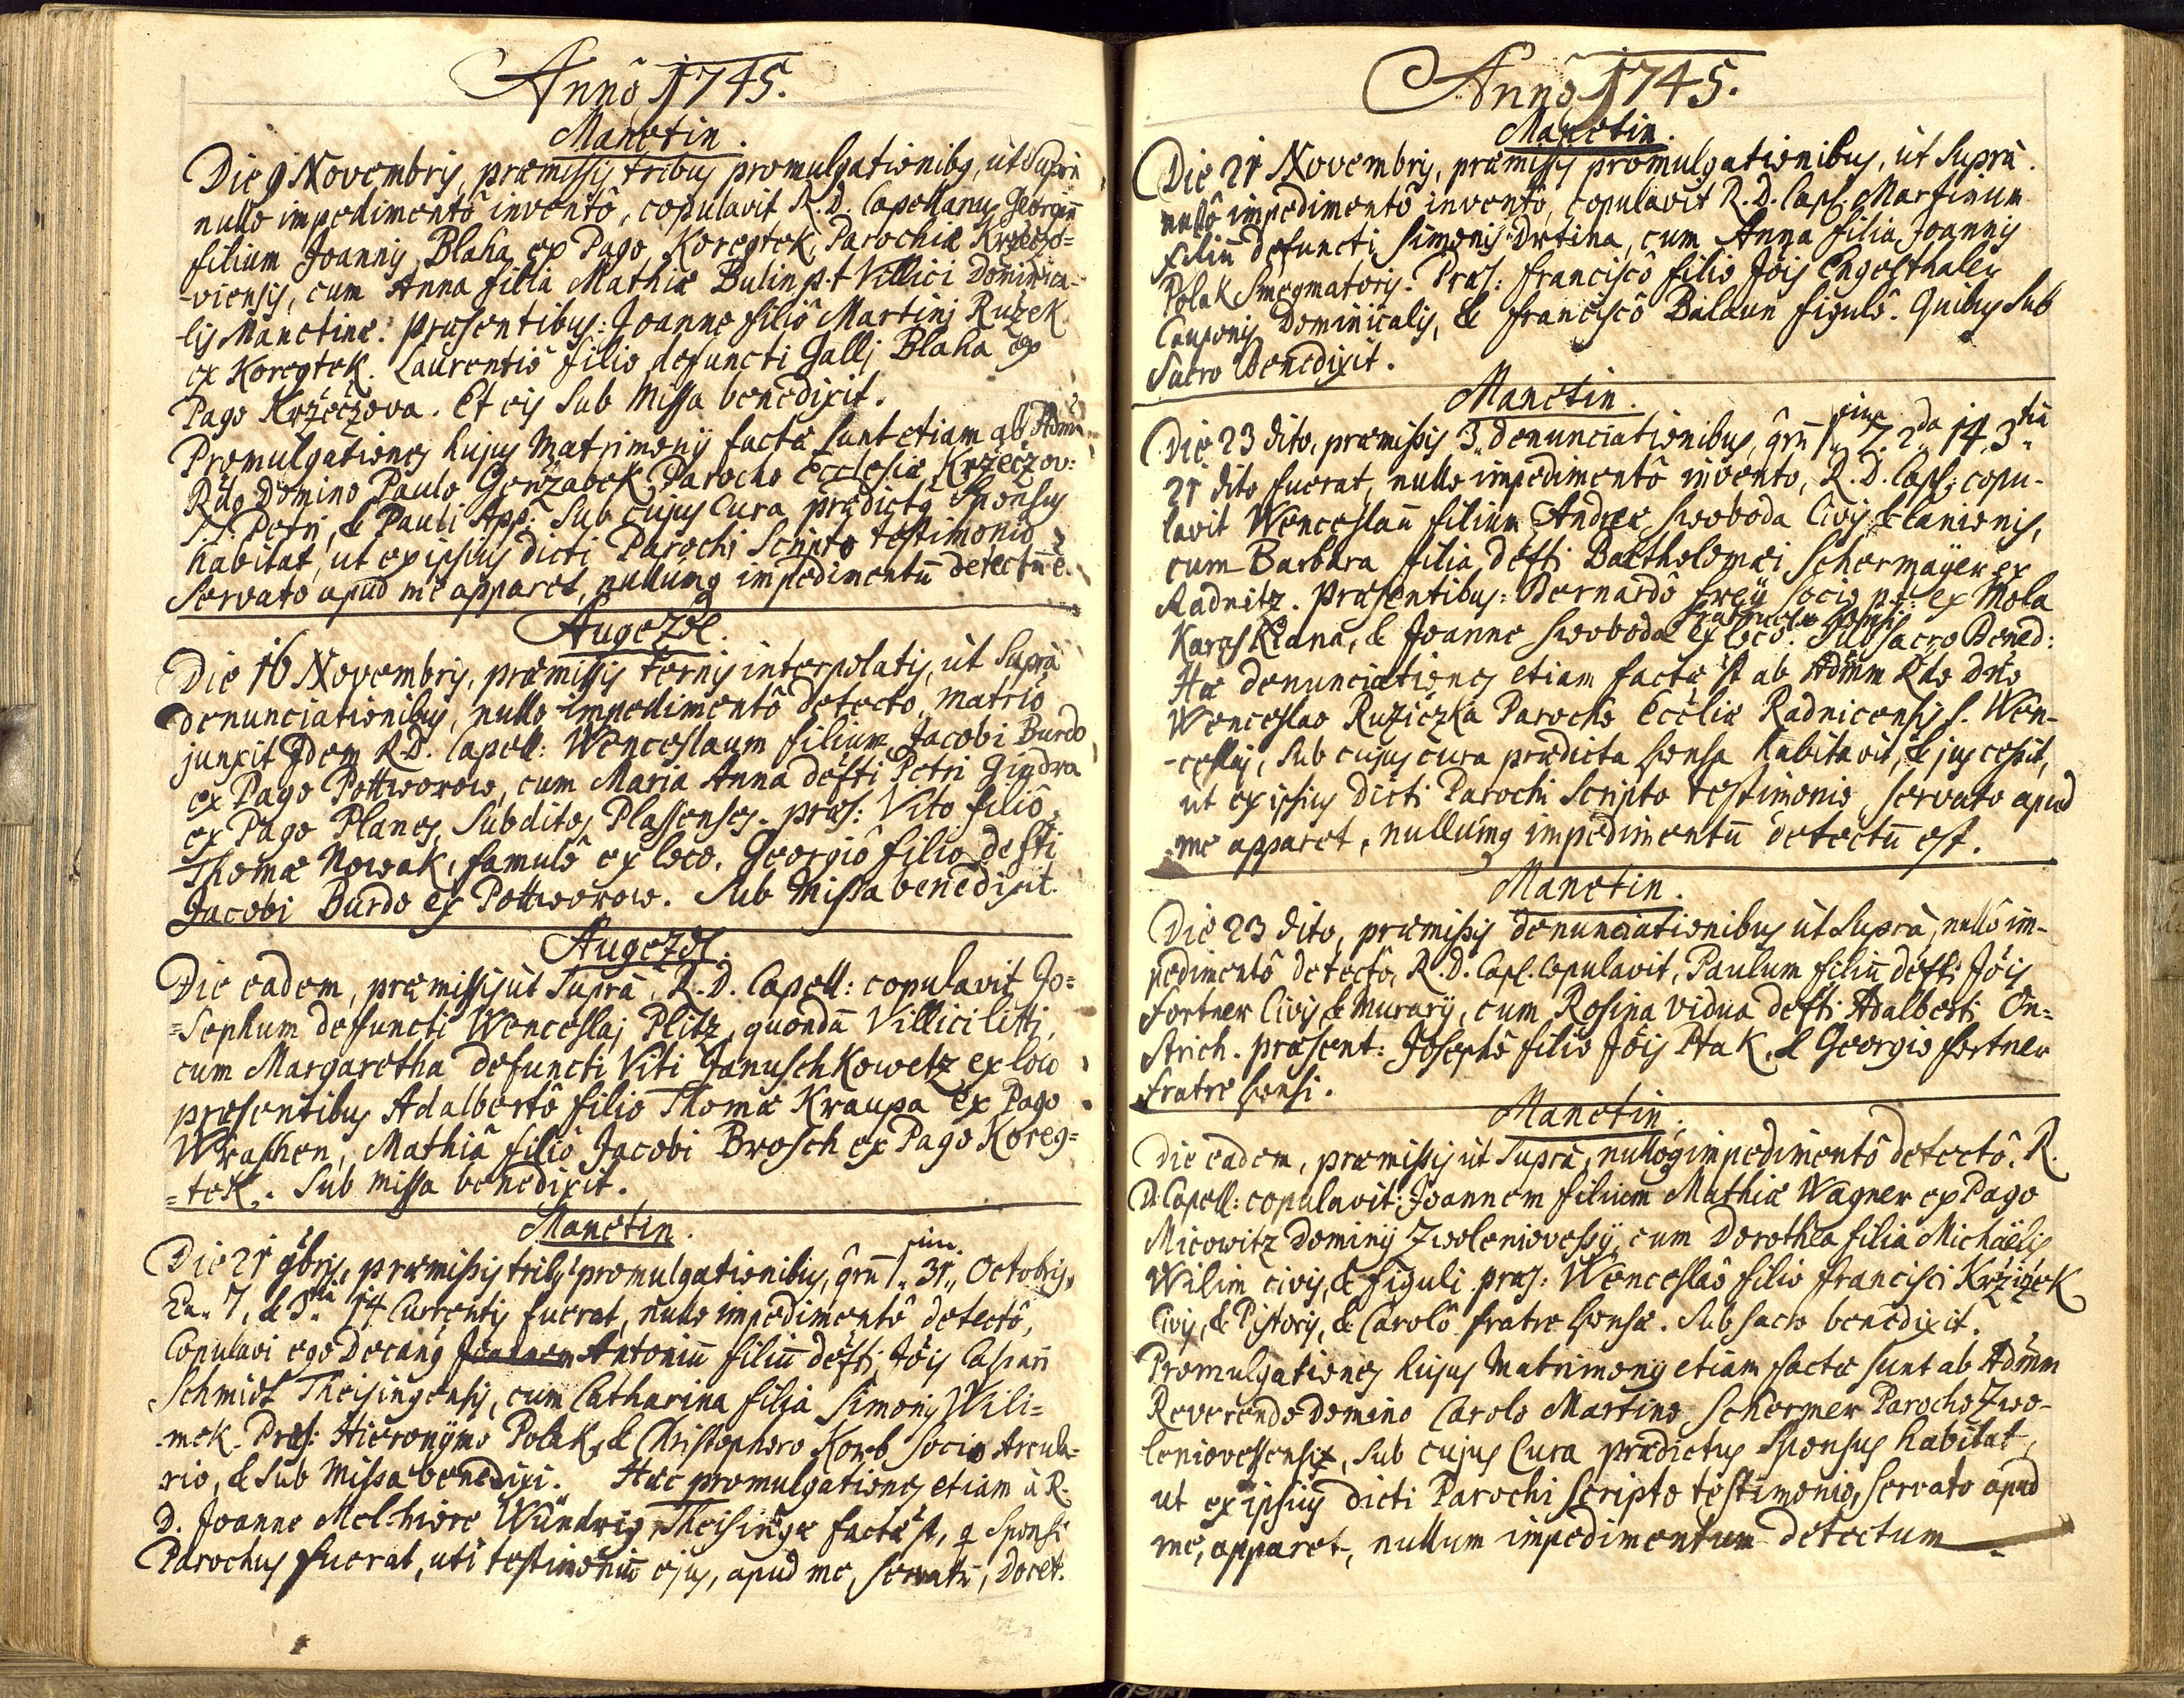 Annô 1745.
Manetin.
Die 9 Novembris, præmissis tribus promulgationibq, ut Supra
nullo impedimentô inventô, copulavit R. D. Capellanus Georgiū
filium Joannis Blaha ex Pago Koregtek, Parochiæ Krzeczo=
-viensis, cum Anna filia Mathiæ Bulin p. t. Villici Dominica-
-lis Manetinæ. præsentibus: Joanne filiô Martinj Ružek
ex Koregtek. Laurentiô filio defuncti Gallj Blaha ex
Pago Krzeczova. Et eis Sub Missa benedixit.
Promulgationes hujus Matrimonÿ factæ sunt etiam ab Adm
Rdo Domino Paulo Geržabek Parocho Ecclesiæ Krzeczov:
S.S. Petri, & Pauli App: Sub cujus Cura prædictq Sponsus
habitat, ut ex ipsius dicti Parochi Scripto testimonio
Servato apud me apparet, nullumq impedimentū detectū ē.
Augezdl.
Die 16 Novembris, præmissis ternis interpolatis, ut Supra
denunciationibus, nullo impedimentô detecto, matriō
junxit Idem R. D. Capell: Wenceslaum filium Jacobi Burdo
ex Pago Pottworow, cum Maria Anna defti Petri Gindra
ex Pago Planes, Subditos Plassenses. præs: Vito filiô
Thomæ Nowak, famulô ex loco. Georgiô filio defti
Jacobi Burdo ex Pottworow. Sub Missa benedixit.
Augezdl.
Die eadem, præmissis ut Supra, R. D. Capell: copulavit Jo=
=Sephum defuncti Wenceslaj Plitz, quondā Villici litti,
cum Margaretha defuncti Viti Januschkowetz ex loco
præsentibus Adalbertô filio Thomæ Kraupa ex Pago
Wrashen, Mathiâ filiô Jacobi Brosch ex Pago Koreg=
=tek. Sub missa benedixit.
Manetin.
Die 21 9bris, præmissis tribq promulgationibus, qrū 1.ma 31 Octobris,
2a. 7, & 3tia 14 Currentis fuerat, nullo impedimentô detectô,
Copulavi ego Decanq Joannem Antoniū filiū defti Jōis Caspari
Schmidt Theisingensis, cum Catharina filia Simonis Wili=
-mek. Præs: Hieronÿmo Polak, & Christophoro Korb Socio Arcula=
rio, & Sub Missa benedixi. Hæc promulgationes etiam à R.
D. Joanne Melchiore Wündrig Theisingæ factæ st, q Sponsi
Parochus fuerat, uti testimoniū ejus, apud me, servatū, docet.
Anno 1745.
Manetin.
Die 21 Novembris, præmissis promulgationibus, ut Supra.
nullô impedimentô inventô, copulavit R. D. Capl. Martinum
filiū defuncti Simonis Drtina, cum Anna filia Joannis
Polak Smegmatoris. Præs: Franciscô filio Jōis Engesthaler
Cauponis Dominicalis, & Franciscô Balaun figulô. Quibus Sub
Sacro Benedixit.
Manetin.
Die 23 dito, præmissis 3. denunciationibus, qrū 1.ma 7. 2da 14. 3tia
21 dito fuerat, nullo impedimentô invento, R. D. Capl. copu-
lavit Wenceslaū filium Andreæ Swoboda Civis & Lanionis,
cum Barbara filia defti Bartholomæi Schermaÿer ex
Radnitz. Præsentibus: Bernardô Freÿ Socio p. t. ex Mola
Karaskiana, & Joanne Swoboda ex loco. fratruele Sponsi Sub Sacro Bened:
Hæ denunciationes etiam factæ st ab Admm Rdo Dno
Wenceslao Ružiczka Parocho Ecclīæ Radnicensis S. Wen-
-ceslaj, Sub cujus cura prædicta Sponsa habitavit, & jus cessit,
ut ex ipsius dicti Parochi Scripto testimonio, Servato apud
me apparet, nullumq impedimentū detectū est.
Manetin.
Die 23 dito, præmissis denunciationibus ut Supra, nullô im-
pedimentô detectô, R. D. Capl. Copulavit, Paulum filiū defti Jōis
Fortner Civis & Murarÿ, cum Rosina vidua defti Adalberti On=
strich. præsent: Josephô filiô Jōis Ptak, & Georgio Fortner
fratre Sponsi.
Manetin.
Die eadem, præmissis ut Supra, nulloq impedimentô detectô. R.
D. Capell: copulavit: Joannem filium Mathiæ Wagner ex Pago
Micowitz Dominÿ Zwoleniovessÿ, cum Dorothea filia Michaëlis
Wilim civis, & figuli. præs: Wenceslaô filio Francisci Kržižek
Civis, & Pistoris, & Carolô fratre Sponsæ. Sub Sacro benedixit.
Promulgationes hujus Matrimonÿ etiam factæ sunt ab Admm
Reverendo Domino Carolo Martino Schermer Parocho Zwo-
leniovessensis, Sub cujus Cura prædictus Sponsus habitat,
ut ex ipsius dicti Parochi Scripto testimonio, Servato apud
me, apparet, nullum impedimentum detectum